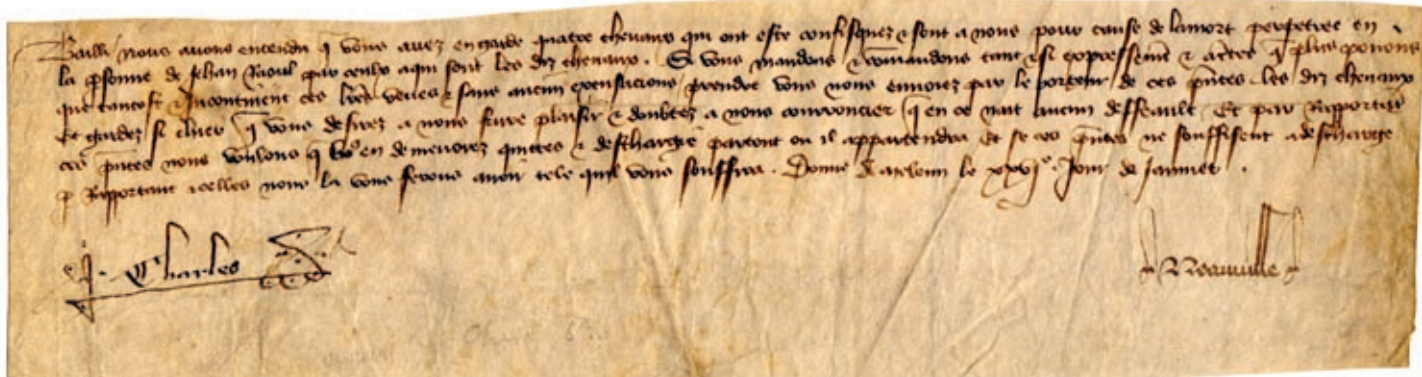 Bailli nous avons entendu q̃ vous avez en garde quatre chevaux qui ont este confisquez & sont a nous pour cause de la mort perpetree en
la p̃sonne de Jehan Raoul par ceulx a qui sont les diz chevaux. Si vous mandons & cõmandons tant & si expressem̃t & acertes q̃ plus povons
que tantost & incontinent ces lr̃es veues & sans aucun excusacions prendre vous nous envoiez par le porteur de ces p̃ntes les diz chevaux
Et gardez si cher q̃ vous desirez a nous faire plaisir & doubtez a nous courroucier q̃ en ce nait aucun deffault Et par Rapportãt
ces p̃ntes nous voulons q̃ vo᷒ en demeurez quittes & deschargie partout ou il appartendra Et se ces p̃ntes ne souffisent a descharge
p Rapportant icelles nous la vous ferons avoir tele quil vous souffira. Donne a le xxvjᵉ Jour de Janvier.
Charles